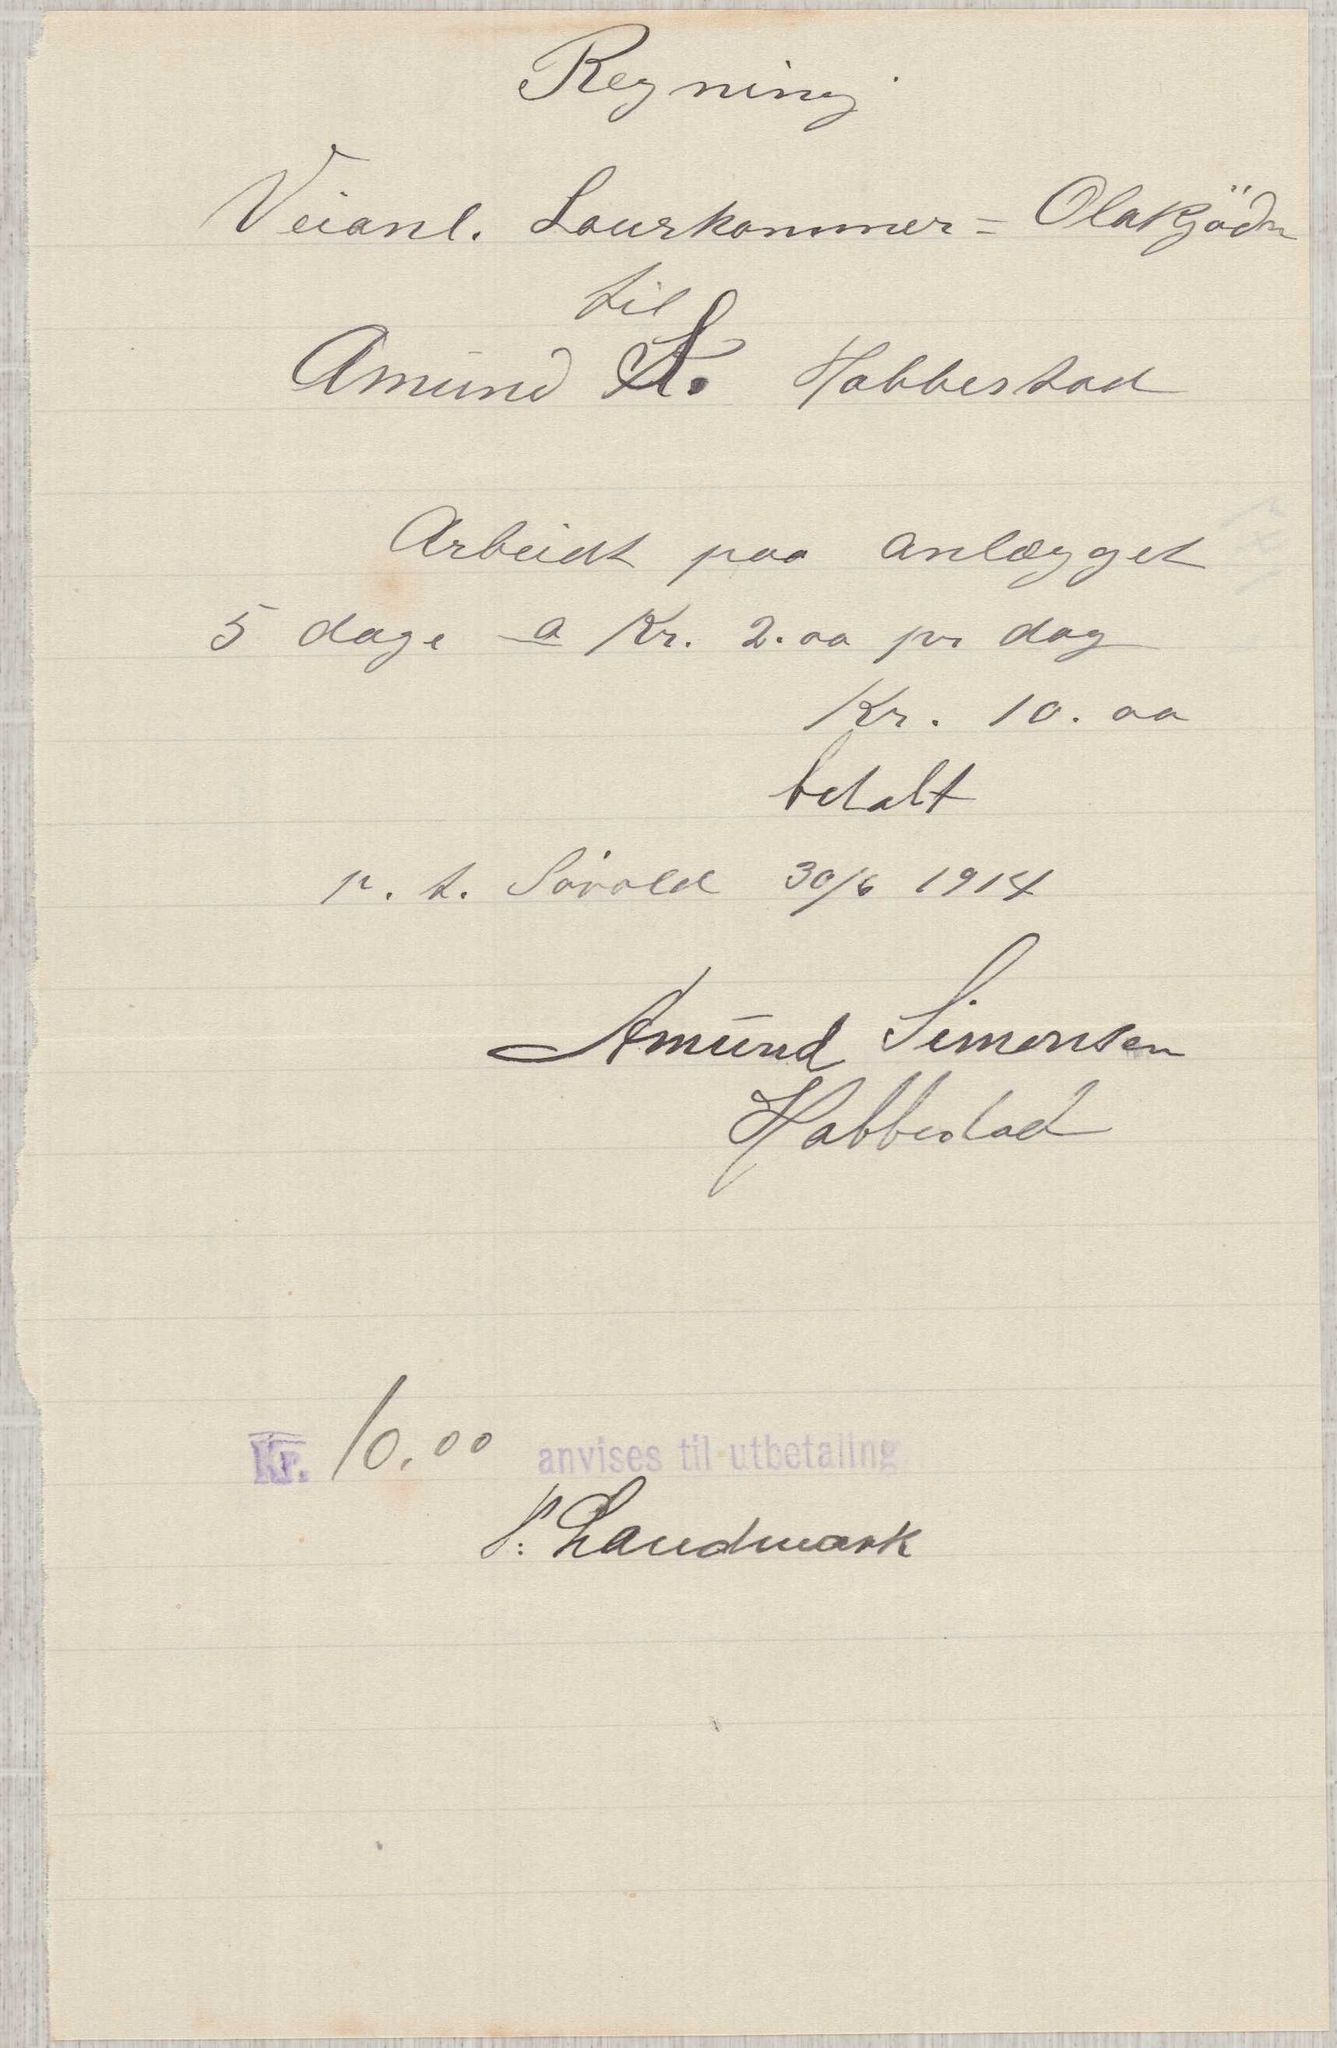 Regning
Veianl. Laurkammer = Olakjödn
til
Amund S. Habbestad
Arbeidt paa anlægget
5 dage a Kr. 2.00 pr dag
Kr. 10.00
betalt
p. t. Sövold 30/6 1914
Amund Simonsen
Habbestad
Kr. 10.00 anvises til utbetaling
P. Landmark